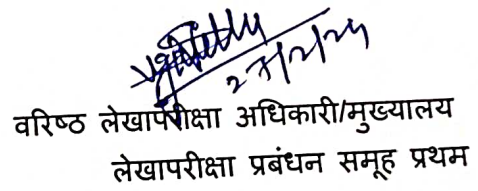 वरिष्ठ लेखापरीक्षा अधिकारी/मुख्यालय
लेखापरीक्षा प्रबंधन समूह प्रथम